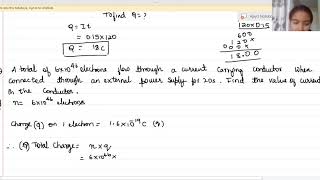 To find Q = ?
Q = It
= 0.15 x 120
Q = 18C
120 x 0.15
600
120x
18.00
A total of 6x10⁴⁶ electrons flow through a current carrying conductor when
connected through an external power supply for 20s. Find the value of current
in the conductor.
n = 6x10⁴⁶ electrons
Charge (q) on 1 electron = 1.6x10⁻¹⁹ C (q)
∴ (Q) Total Charge = n x q
= 6x10⁴⁶ x